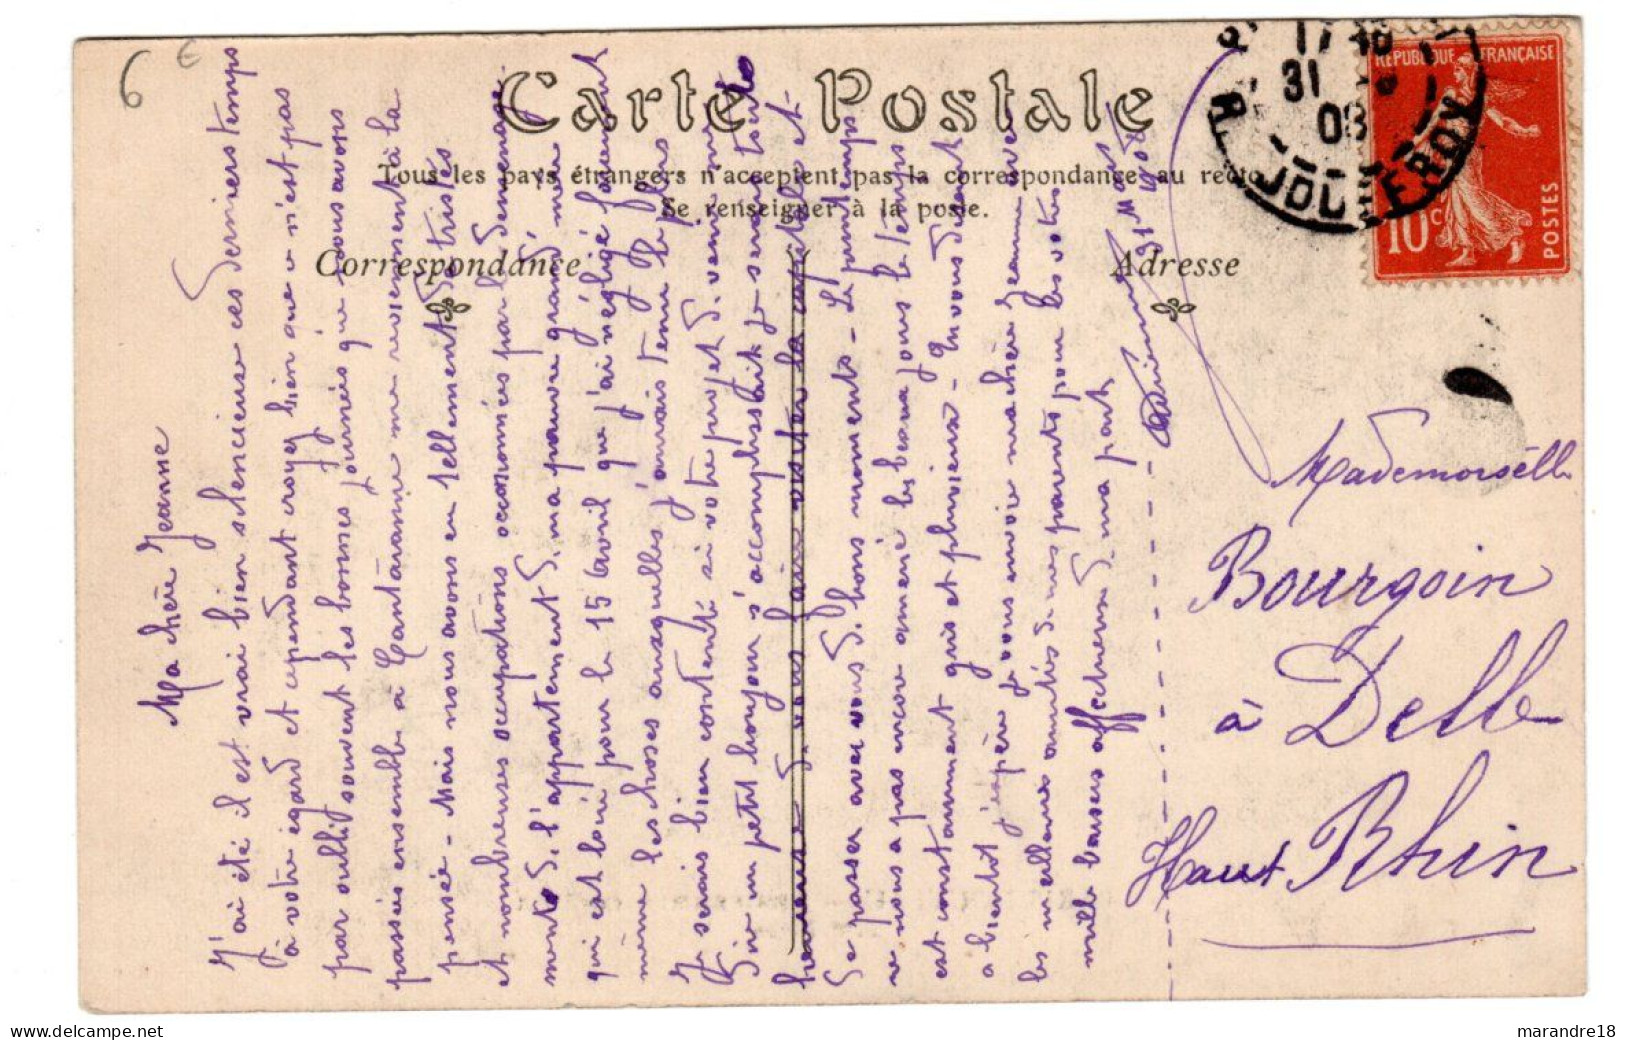 6 €
Carte Postale
Tous les pays étrangers n'acceptent pas la correspondance au recto
Se renseigner à la poste.
Correspondance
Adresse
Ma chère Jeanne
J'ai été il est vrai bien silencieuse ces derniers temps
à votre égard et cependant croyez bien que ce n'est pas
par oubli souvent les bonnes journées que nous avons
passées ensemble à Cantaranne me reviennent à la
pensée - Mais nous avons eu tellement de tristes
et nombreuses occupations occasionnées par le déménage
ment de l'appartement de ma pauvre grand' mère
qui est loué pour le 15 avril que j'ai négligé forcément
même les choses auxquelles j'aurais tenu le plus
Je serais bien contente si votre projet de venir nous
voir un petit bonjour s'accomplissait je serais toute
heureuse de vous faire visiter la capitale et
de passer avec vous de bons moments - Le printemps
ne nous a pas encore amené les beaux jours le temps
est constamment gris et pluvieux -
à bientôt j'espère je vous envoie ma chère Jeanne avec
les meilleures amitiés de mes parents pour les vôtres
mille baisers affectueux de ma part
31 Mars 1908
Mademoiselle
Bourgoin
à Delle
Haut Rhin
REPUBLIQUE FRANÇAISE
10 c
POSTES
31
08
R. JOUFFROY
marandre18
https://www.delcampe.net